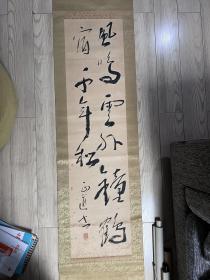 風鳴雲外鐘鶴
宿千年松